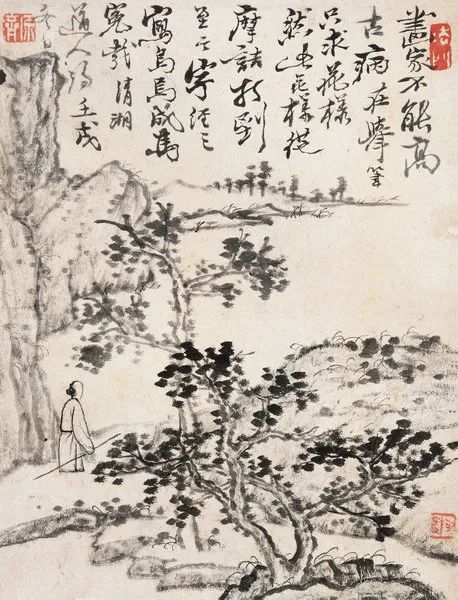 畫家不能高
古病在舉筆
只求花樣
然此花樣從
摩詰打到
至今字經三
寫烏焉成馬
冤哉清湘
道人濟壬戌